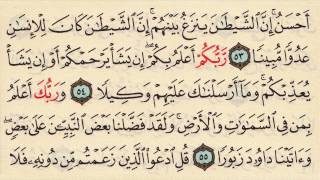 أَحْسَنُ إِنَّ ٱلشَّيْطَٰنَ يَنزَغُ بَيْنَهُمْ إِنَّ ٱلشَّيْطَٰنَ كَانَ لِلْإِنسَٰنِ
عَدُوًّا مُّبِينًا ٥٣ رَّبُّكُمْ أَعْلَمُ بِكُمْ إِن يَشَأْ يَرْحَمْكُمْ أَوْ إِن يَشَأْ
يُعَذِّبْكُمْ وَمَآ أَرْسَلْنَٰكَ عَلَيْهِمْ وَكِيلًا ٥٤ وَرَبُّكَ أَعْلَمُ
بِمَن فِى ٱلسَّمَٰوَٰتِ وَٱلْأَرْضِ وَلَقَدْ فَضَّلْنَا بَعْضَ ٱلنَّبِيِّۦنَ عَلَىٰ بَعْضٍ
وَءَاتَيْنَا دَاوُۥدَ زَبُورًا ٥٥ قُلِ ٱدْعُوا۟ ٱلَّذِينَ زَعَمْتُم مِّن دُونِهِۦ فَلَا